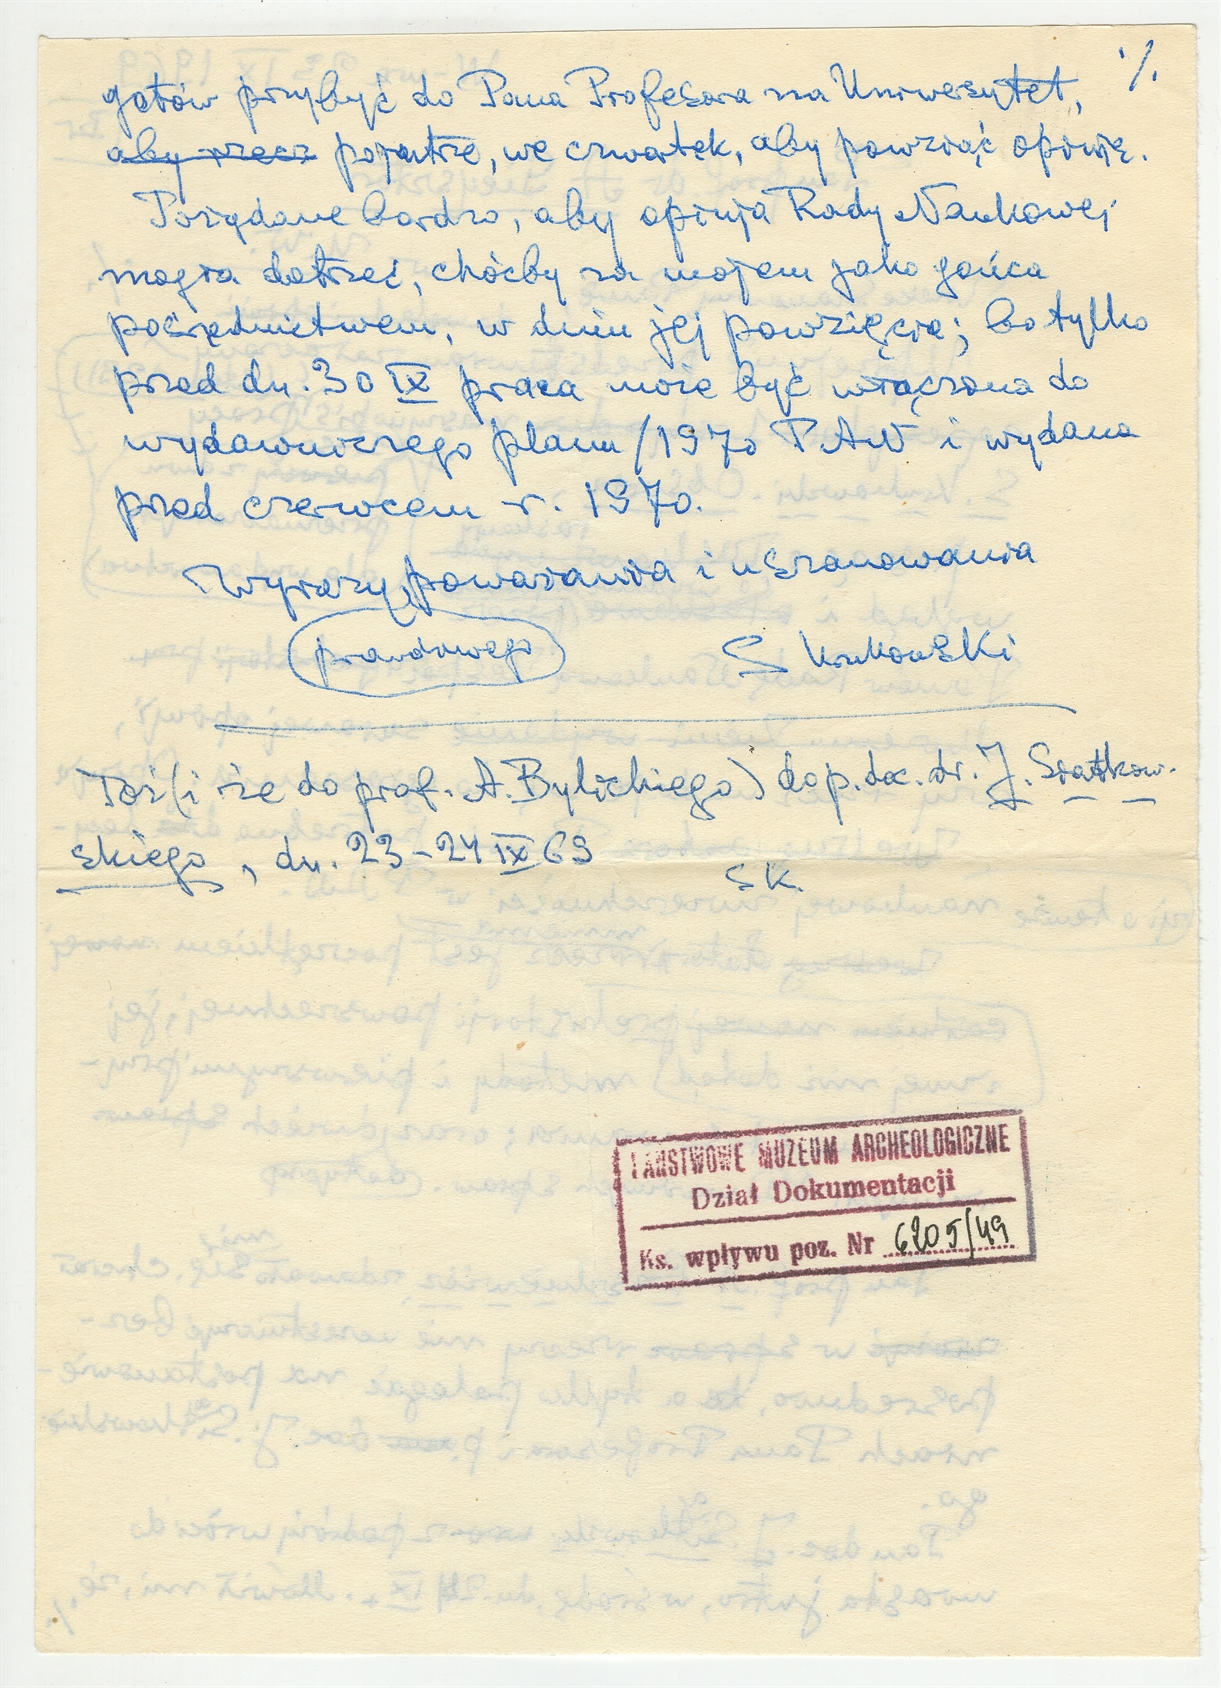 ·/.
gotów przybyć do Pana Profesora na Uniwersytet,
aby rzecz pojutrze, we czwartek, aby powziąć opinję.
Pożądane bardzo, aby opinja Rady Naukowej
mogła dotrzeć, choćby za mojem jako gońca
pośrednictwem, w dniu jej powzięcia; bo tylko
przed dn. 30 IX praca może być włączona do
wydawniczego planu/1970 PAN i wydana
przed czerwcem r. 1970.
Wyrazy poważania i uszanowania
prawdziwego
S Krukowski
Toż (i że do prof. A. Bylickiego) do p. doc. dr. J. Siatkow-
skiego, dn. 23-24 IX 69
SK.
PAŃSTWOWE MUZEUM ARCHEOLOGICZNE
Dział Dokumentacji
Ks. wpływu poz. Nr 6205/49